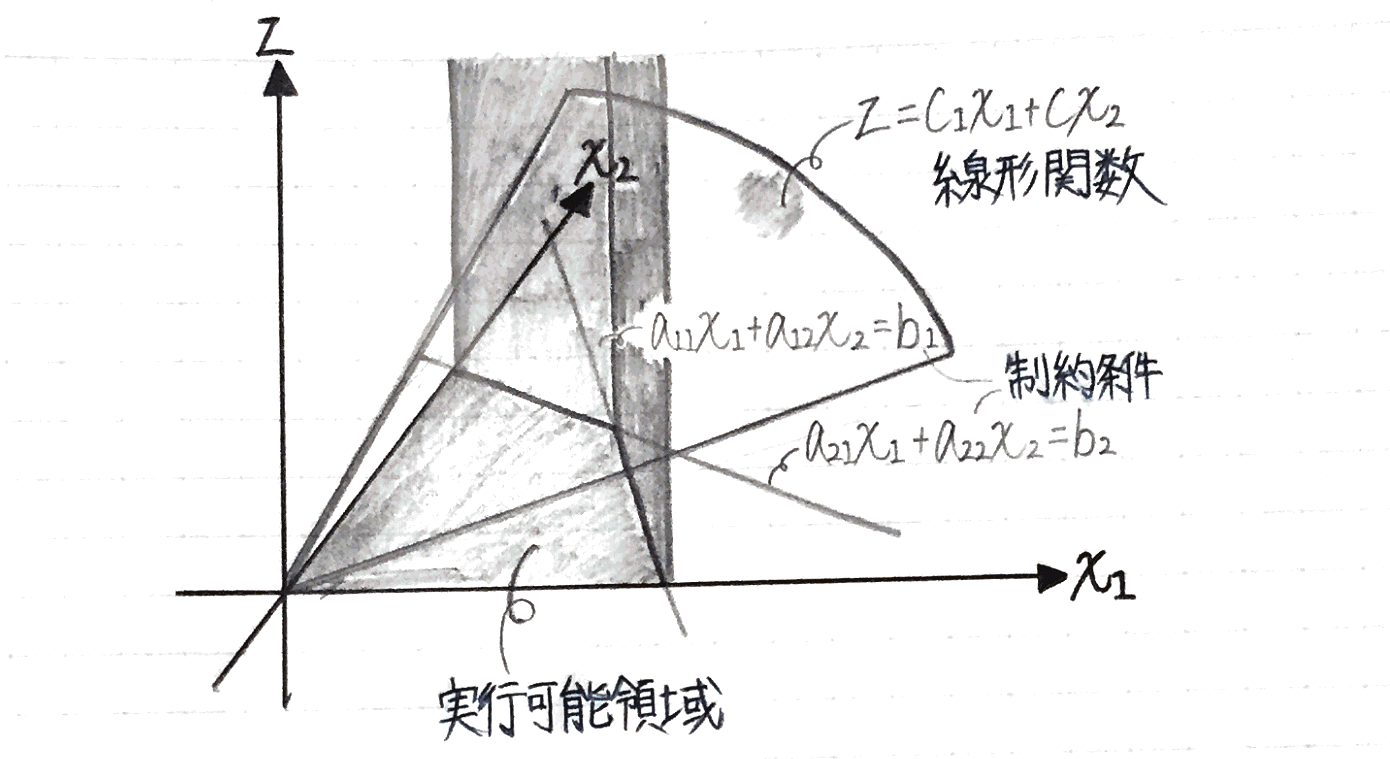 Z
Z=C₁x₁+Cx₂
線形関数
x₂
a₁₁x₁+a₁₂x₂=b₁
制約条件
a₂₁x₁+a₂₂x₂=b₂
x₁
実行可能領域